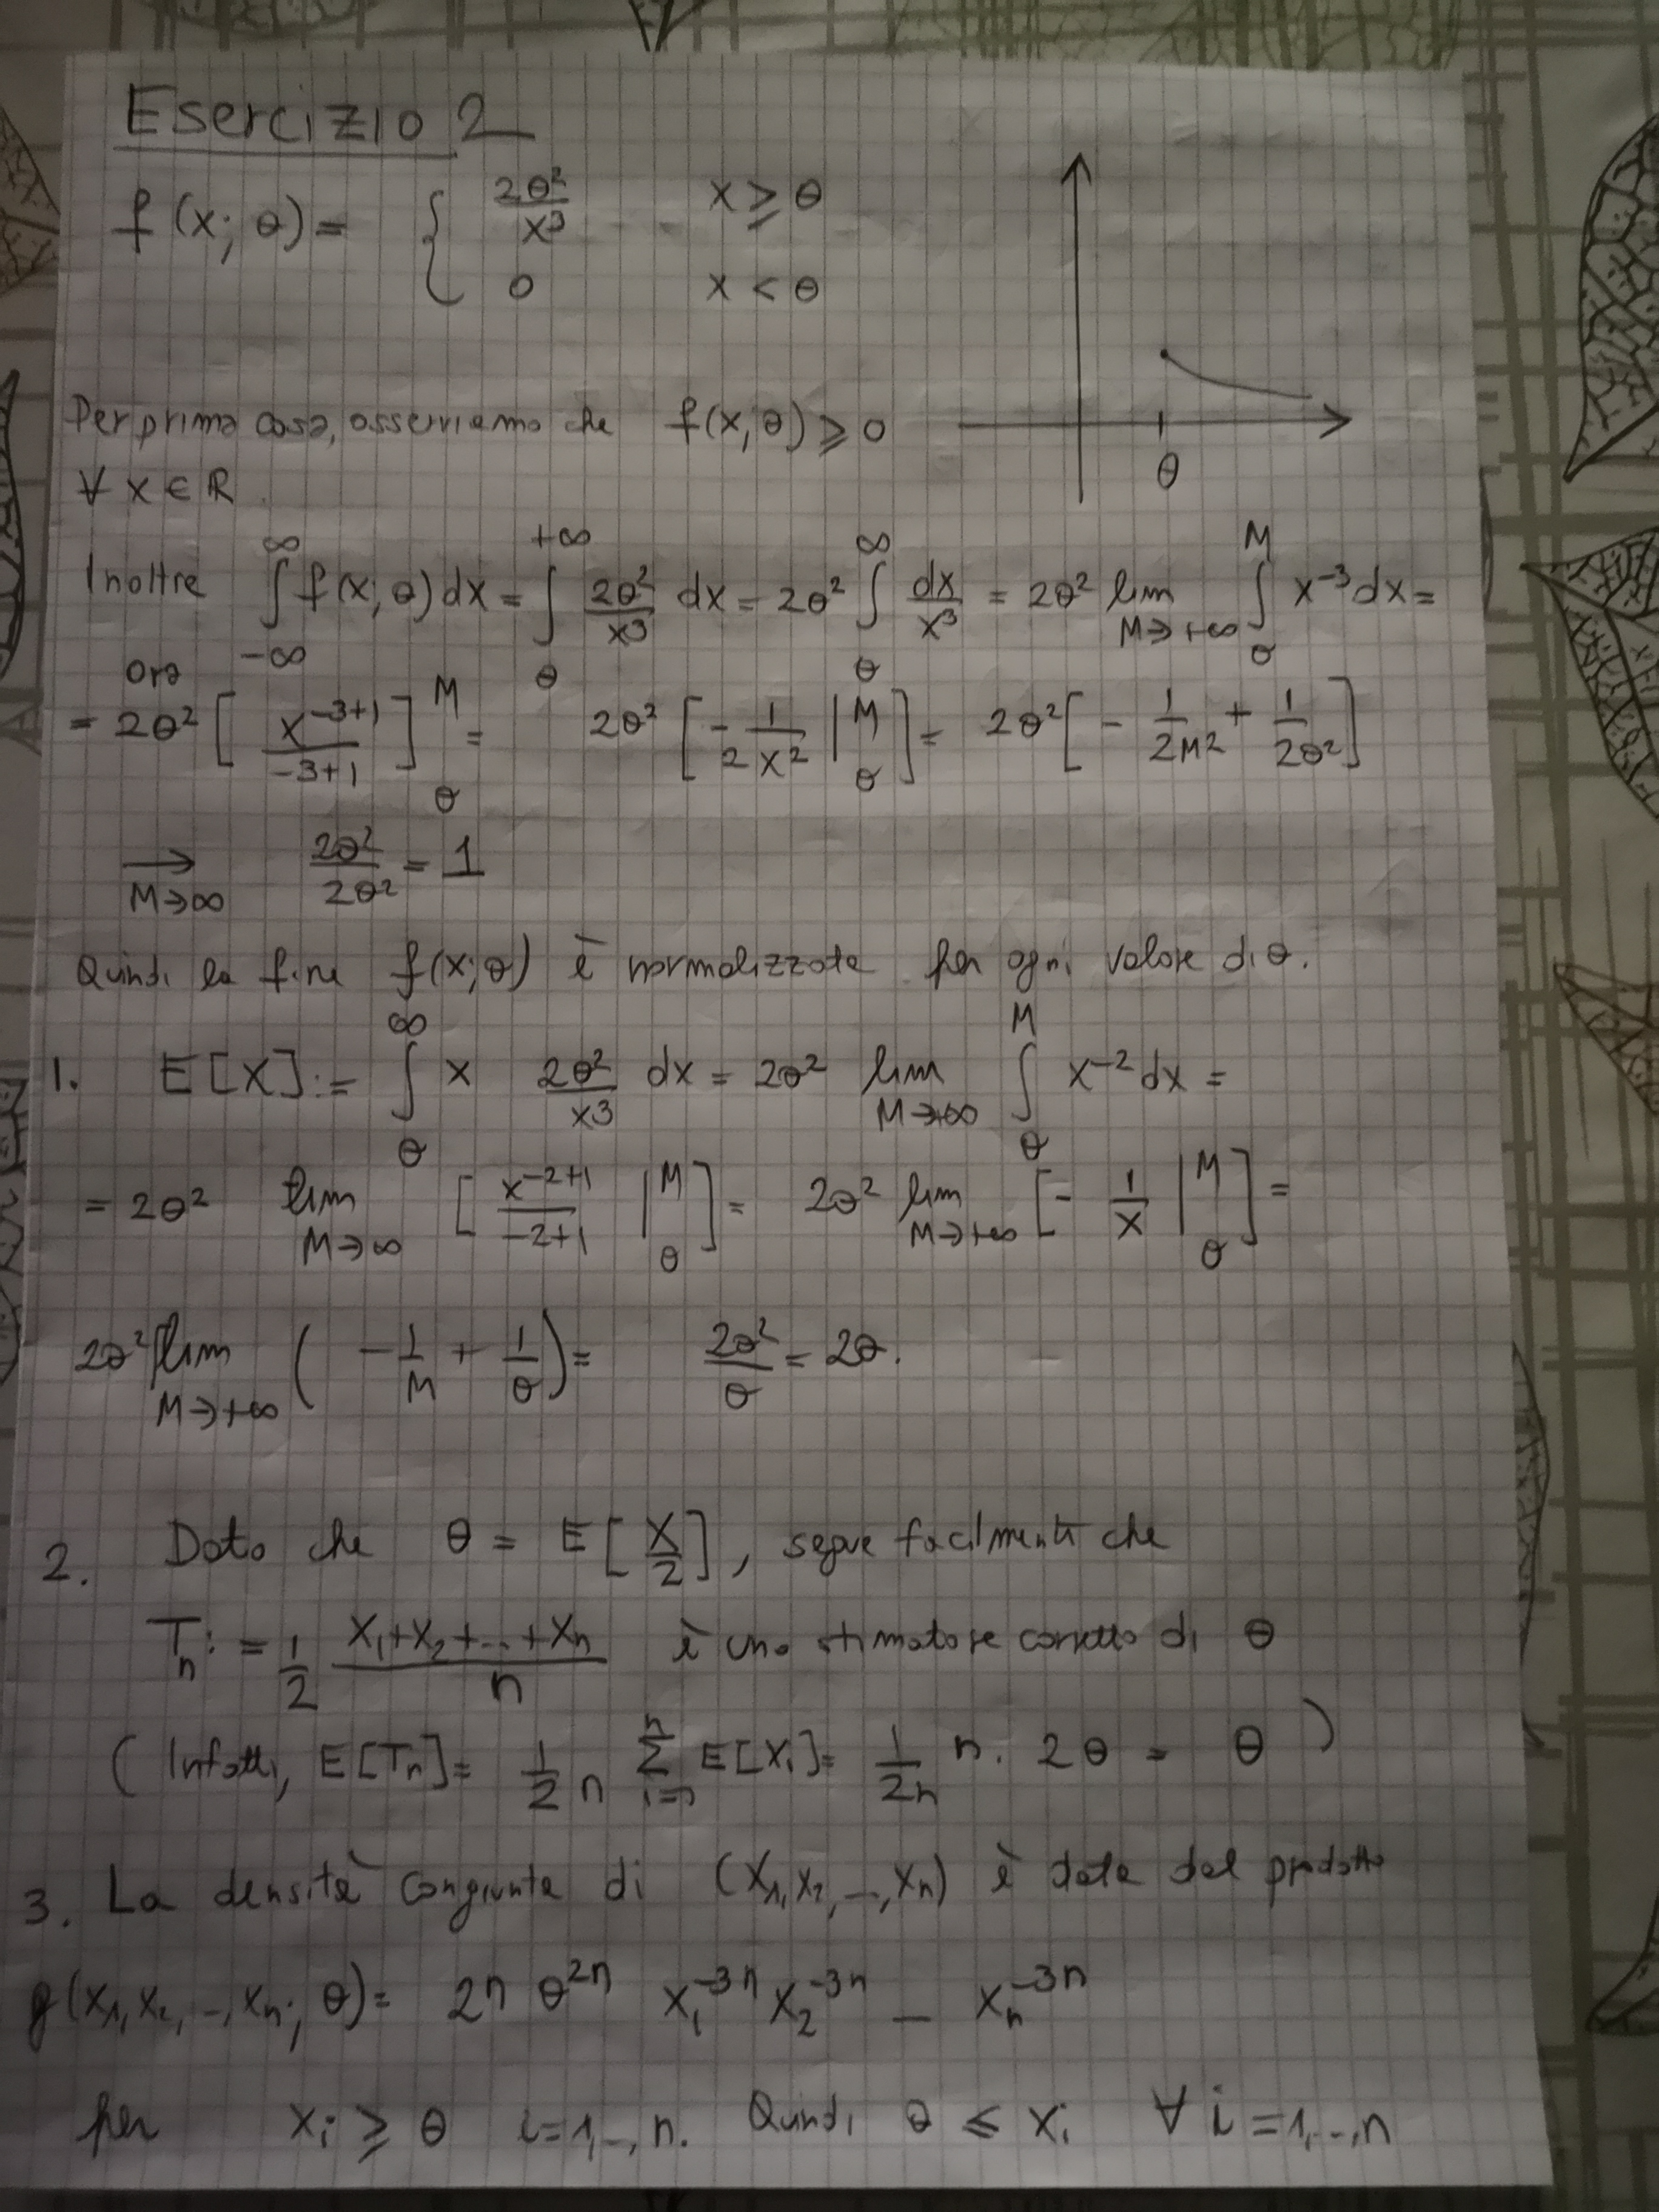 Esercizio 2
f(x; θ) = { 2θ²/x³ x ≥ θ
0 x < θ
Per prima cosa, osserviamo che f(x; θ) ≥ 0
θ
∀ x ∈ ℝ.
Inoltre ∫_{-∞}^{∞} f(x; θ) dx = ∫_θ^{+∞} 2θ²/x³ dx = 2θ² ∫_θ^∞ dx/x³ = 2θ² lim_{M→+∞} ∫_θ^M x⁻³ dx =
Ora
= 2θ² [x^{-3+1}/(-3+1)]_θ^M = 2θ² [-1/(2x²) |_θ^M] = 2θ² [-1/(2M²) + 1/(2θ²)]
→_{M→∞} 2θ²/2θ² = 1
Quindi la f.ne f(x; θ) è normalizzata per ogni valore di θ.
1. E[X] := ∫_θ^∞ x 2θ²/x³ dx = 2θ² lim_{M→+∞} ∫_θ^M x⁻² dx =
= 2θ² lim_{M→∞} [x^{-2+1}/(-2+1) |_θ^M] = 2θ² lim_{M→+∞} [-1/x |_θ^M] =
2θ² lim_{M→+∞} (-1/M + 1/θ) = 2θ²/θ = 2θ.
2. Dato che θ = E[X/2], segue facilmente che
T_n := 1/2 (X₁+X₂+...+X_n)/n è uno stimatore corretto di θ
(Infatti, E[T_n] = 1/2n Σ_{i=1}^n E[X_i] = 1/2n n. 2θ = θ)
3. La densità congiunta di (X₁, X₂, --, X_n) è data dal prodotto
g(x₁, x₂, --, x_n; θ) = 2n θ^{2n} x₁^{-3n} x₂^{-3n} -- x_n^{-3n}
per x_i ≥ θ i=1,--,n. Quindi θ ≤ x_i ∀ i=1,--,n